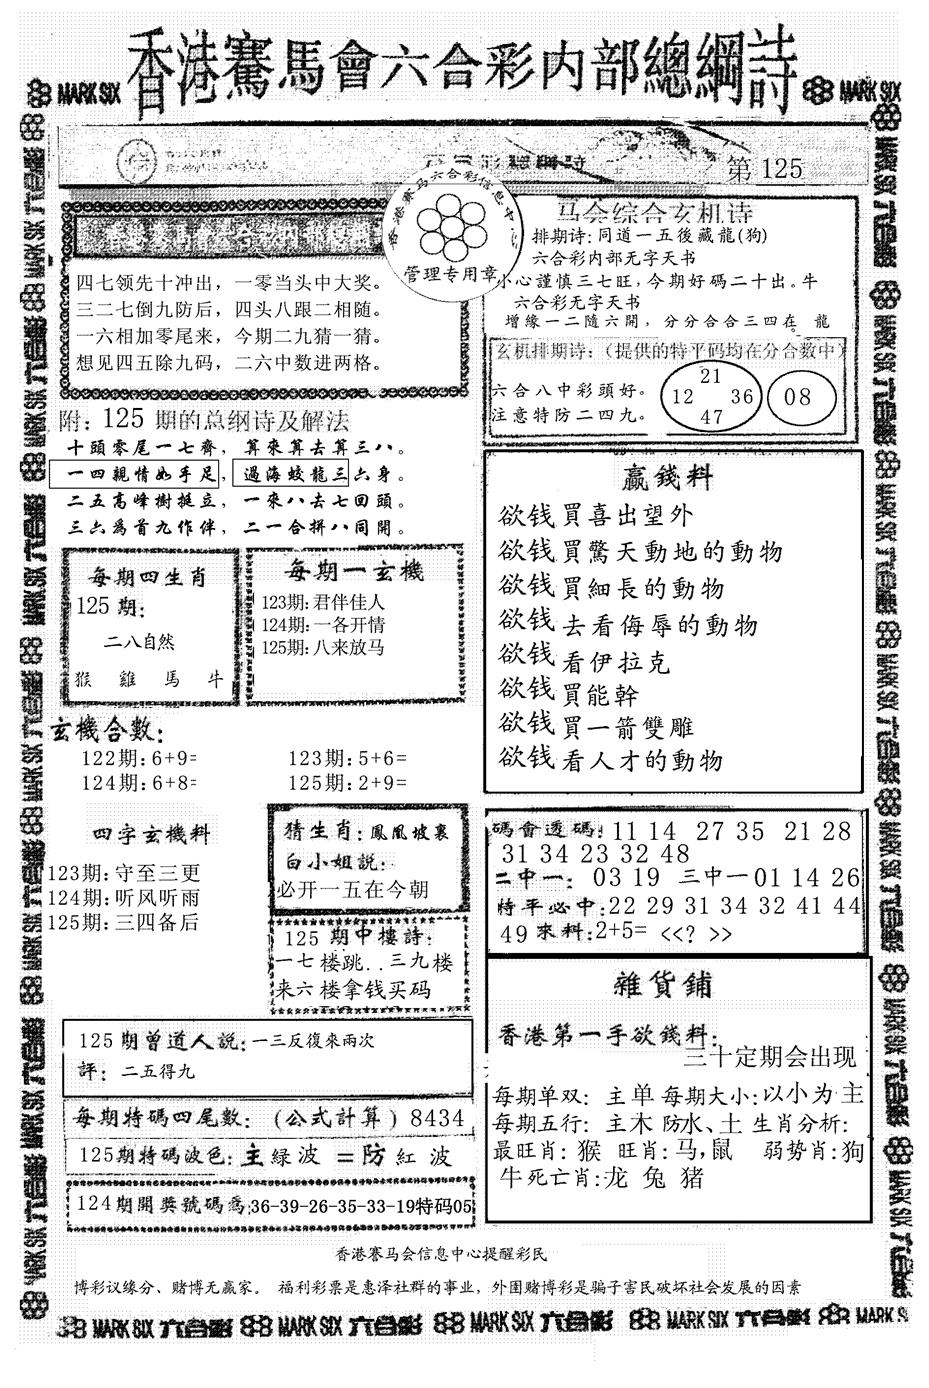 香港賽馬會六合彩内部總綱詩
MARK SIX
MARK SIX
第 125
香港赛马六合彩信息中心
管理专用章
四七领先十冲出，一零当头中大奖。
三二七倒九防后，四头八跟二相随。
一六相加零尾来，今期二九猜一猜。
想见四五除九码，二六中数进两格。
马会综合玄机诗
排期诗:同道一五後藏龍(狗)
六合彩内部无字天书
小心謹慎三七旺,今期好碼二十出。牛
六合彩无字天书
增緣一二隨六開，分分合合三四在。龍
玄机排期诗:(提供的特平码均在分合数中)
六合八中彩頭好。
注意特防二四九。
21
12 36
47
08
附: 125 期的总纲诗及解法
十頭零尾一七齊，算來算去算三八。
一四親情如手足，過海蛟龍三六身。
二五高峰樹挺立，一來八去七回頭。
三六為首九作伴，二一合拼八同開。
每期四生肖
125 期:
二八自然
猴 雞 馬 牛
每期一玄機
123期:君伴佳人
124期:一各开情
125期:八来放马
玄機合數:
122期:6+9= 123期:5+6=
124期:6+8= 125期:2+9=
四字玄機料
123期:守至三更
124期:听风听雨
125期:三四备后
猜生肖:鳳凰坡裏
白小姐説:
必开一五在今朝
125 期中樓詩:
一七楼跳..三九楼
来六楼拿钱买码
赢錢料
欲钱買喜出望外
欲钱買驚天動地的動物
欲钱買細長的動物
欲钱去看侮辱的動物
欲钱看伊拉克
欲钱買能幹
欲钱買一箭雙雕
欲钱看人才的動物
碼會透碼: 11 14 27 35 21 28
31 34 23 32 48
二中一: 03 19 三中一 01 14 26
特平必中:22 29 31 34 32 41 44
49 來料:2+5= <<? >>
雜貨鋪
香港第一手欲錢料:
三十定期会出现
每期单双: 主单 每期大小:以小为主
每期五行: 主木 防水、土 生肖分析:
最旺肖: 猴 旺肖:马,鼠 弱势肖:狗
牛死亡肖:龙 兔 猪
125期曾道人説:一三反復來兩次
評: 二五得九
每期特碼四尾數: (公式計算) 8434
125期特碼波色:主緑波 =防紅波
124期開獎號碼爲:36-39-26-35-33-19特码05
香港赛马会信息中心提醒彩民
博彩议缘分、赌博无赢家。 福利彩票是惠泽社群的事业，外围赌博彩是骗子害民破坏社会发展的因素
MARK SIX 六合彩 MARK SIX 六合彩 MARK SIX 六合彩 MARK SIX 六合彩 MARK SIX